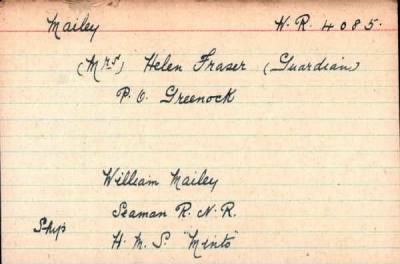 Mailey N.R. 4085.
(Mrs) Helen Fraser (Guardian)
P.O. Greenock
William Mailey
Seaman R.N.R.
Ship H.M.S. "Minto"